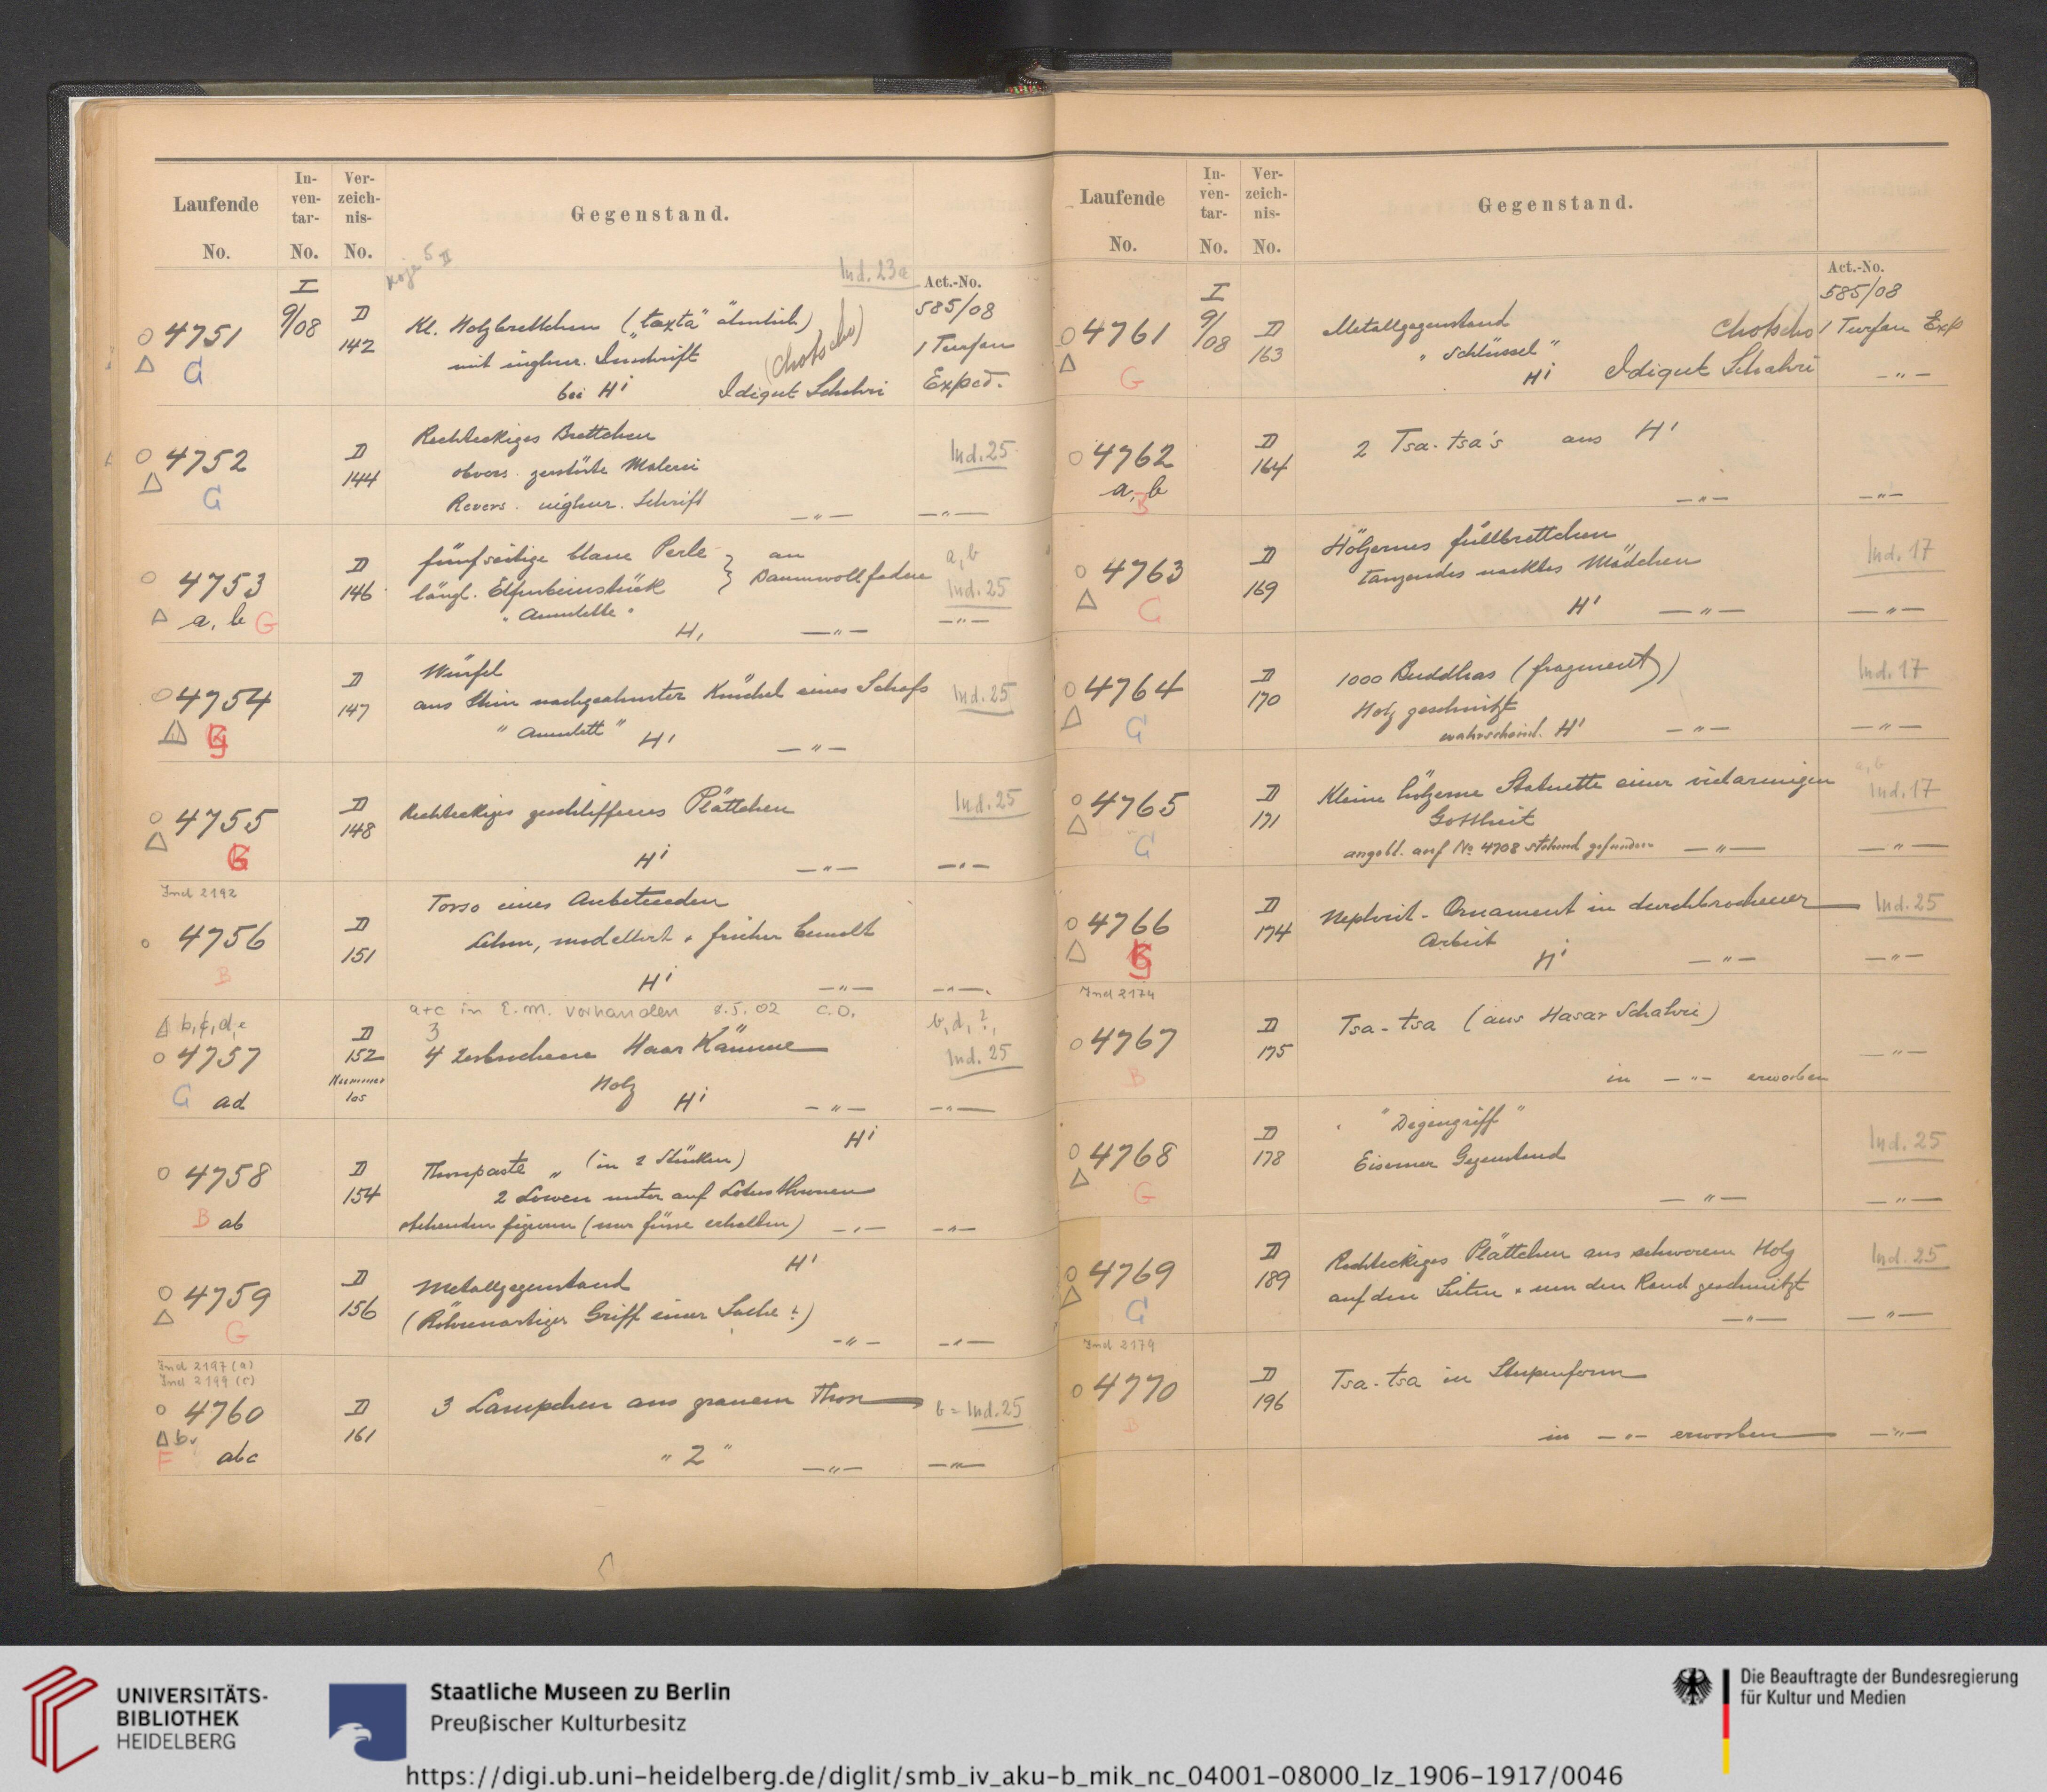 Laufende No.
In-ven-tar-No.
Ver-zeich-nis-No.
Gegenstand.
Koje 5 II
Ind. 23a
Act.-No.
I
9/08
585/08
4751
G
D
142
Kl. Holzbrettchen („taxta" ähnlich)
mit uighur. Inschrift
(Chotscho)
1 Turfan
bei H' Idigut Schehri
Exped.
4752
G
D
144
Rechteckiges Brettchen
obvers. zerstörte Malerei
Revers. uighur. Schrift
—"—
Ind. 25
—"—
4753
a, b G
D
146
fünfseitige blaue Perle } an
längl. Elfenbeinstück } Baumwollfaden
"Amulette"
H, —"—
a, b
Ind. 25
—"—
4754
G
D
147
Würfel
aus Stein nachgeahmter Knöchel eines Schafs
"Amulett" H' —"—
Ind. 25
4755
G
D
148
Rechteckiges geschliffenes Plättchen
H' —"—
Ind. 25
—"—
Ind 2192
4756
B
D
151
Torso eines Anbetenden
Lehm, modelliert + früher bemalt
H' —"—
—"—
a+c in E.M. vorhanden 8.5.02 C.O.
b, c, d, e
4757
G ad
D
152
Nummer
los
3
4 zerbrochene Haar Kämme
Holz H' —"—
b, d, ?,
Ind. 25
—"—
4758
B ab
D
154
H'
Thonpaste „ (in 2 Stücken)
2 Löwen unter auf Lotusthronen
stehenden figuren (nur füsse erhalten) —"—
—"—
4759
G
D
156
H'
Metallgegenstand
(Röhrenartiger Griff einer Sache?)
—"—
—"—
Ind 2197 (a)
Ind 2199 (c)
4760
b
F abc
D
161
3 Lampchen aus grauem Thon
"2" —"—
b = Ind. 25
—"—
Laufende No.
In-ven-tar-No.
Ver-zeich-nis-No.
Gegenstand.
Act.-No.
I
9/08
585/08
4761
G
D
163
Metallgegenstand Chotscho
1 Turfan Exp
"Schlüssel"
H' Idigut Schahri
—"—
4762
a, b
B
D
164
2 Tsa-tsa's aus H'
—"—
—"—
4763
G
D
169
Hölzernes füllbrettchen
tanzendes nacktes Mädchen
H' —"—
Ind. 17
—"—
4764
G
D
170
1000 Buddhas (fragment)
Holz geschnitzt
wahrscheinl. H' —"—
Ind. 17
—"—
4765
G
D
171
Kleine hölzerne Statuette einer vielarmigen
Gottheit
angebl. auf No 4708 stehend gefunden —"—
a, b
Ind. 17
—"—
4766
G
D
174
Nephrit-Ornament in durchbrochener
Arbeit
H' —"—
Ind. 25
—"—
Ind 2174
4767
B
D
175
Tsa-tsa (aus Hasar Schahri)
in —"— erworben
—"—
4768
G
D
178
"Degengriff"
Eiserner Gegenstand
—"—
Ind. 25
—"—
4769
G
D
189
Rechteckiges Plättchen aus schwerem Holz
auf den Seiten + um den Rand geschnitzt
—"—
Ind. 25
—"—
Ind 2179
4770
B
D
196
Tsa-tsa in Stupenform
in —"— erworben
—"—
UNIVERSITÄTS-
BIBLIOTHEK
HEIDELBERG
Staatliche Museen zu Berlin
Preußischer Kulturbesitz
Die Beauftragte der Bundesregierung
für Kultur und Medien
https://digi.ub.uni-heidelberg.de/diglit/smb_iv_aku-b_mik_nc_04001-08000_lz_1906-1917/0046